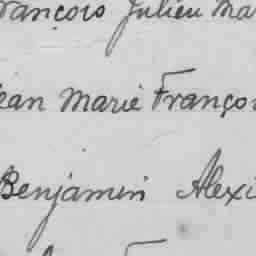 François Julien Ma
ean Marie Franço
Benjamin Alexi